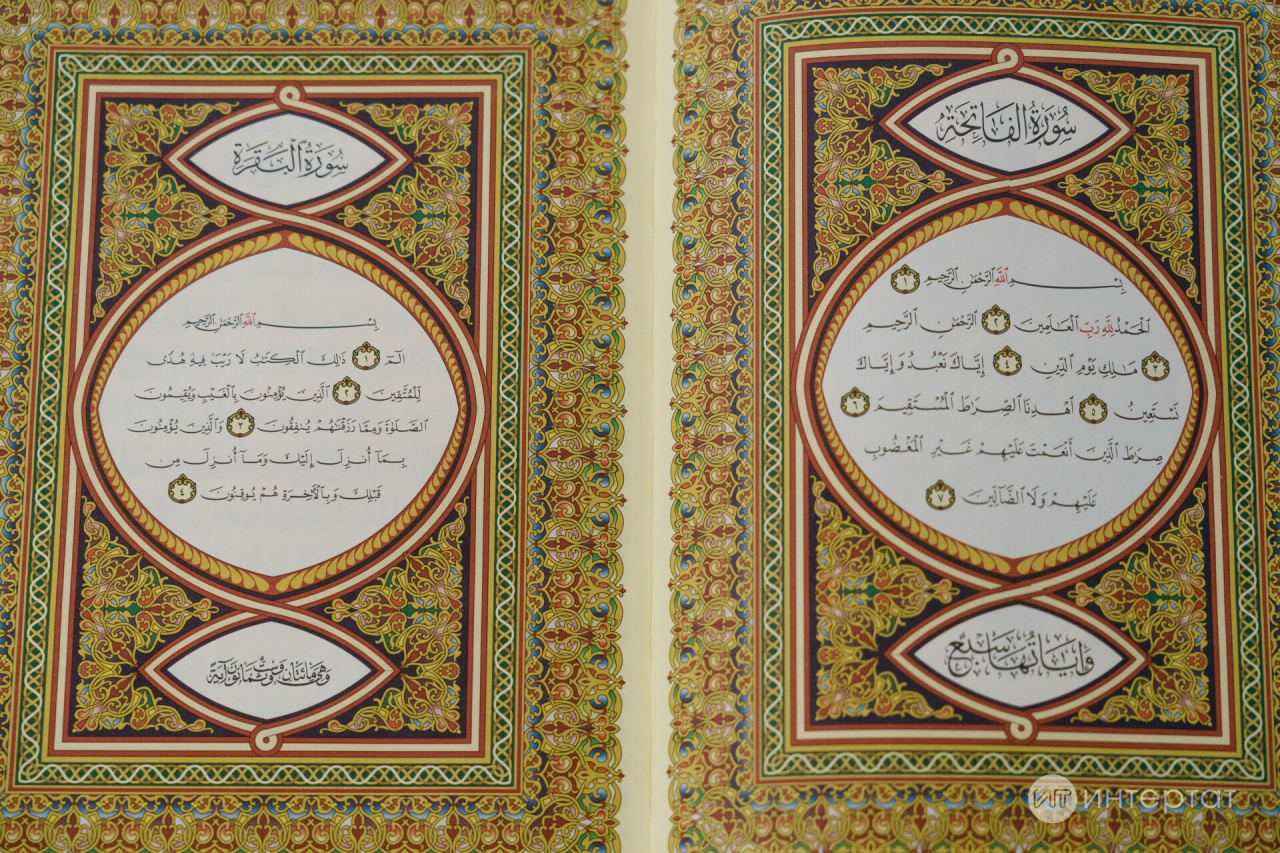 سُورَةُ الْفَاتِحَةِ
بِسْمِ ٱللَّهِ ٱلرَّحْمَٰنِ ٱلرَّحِيمِ ١
ٱلْحَمْدُ لِلَّهِ رَبِّ ٱلْعَالَمِينَ ٢ ٱلرَّحْمَٰنِ ٱلرَّحِيمِ
٣ مَالِكِ يَوْمِ ٱلدِّينِ ٤ إِيَّاكَ نَعْبُدُ وَإِيَّاكَ
نَسْتَعِينُ ٥ ٱهْدِنَا ٱلصِّرَٰطَ ٱلْمُسْتَقِيمَ ٦
صِرَٰطَ ٱلَّذِينَ أَنْعَمْتَ عَلَيْهِمْ غَيْرِ ٱلْمَغْضُوبِ
عَلَيْهِمْ وَلَا ٱلضَّآلِّينَ ٧
وَآيَاتُهَا سَبْعٌ
سُورَةُ الْبَقَرَةِ
بِسْمِ ٱللَّهِ ٱلرَّحْمَٰنِ ٱلرَّحِيمِ
الٓمٓ ١ ذَٰلِكَ ٱلْكِتَٰبُ لَا رَيْبَ فِيهِ هُدًى
لِّلْمُتَّقِينَ ٢ ٱلَّذِينَ يُؤْمِنُونَ بِٱلْغَيْبِ وَيُقِيمُونَ
ٱلصَّلَوٰةَ وَمِمَّا رَزَقْنَٰهُمْ يُنفِقُونَ ٣ وَٱلَّذِينَ يُؤْمِنُونَ
بِمَآ أُنزِلَ إِلَيْكَ وَمَآ أُنزِلَ مِن
قَبْلِكَ وَبِٱلْآخِرَةِ هُمْ يُوقِنُونَ ٤
وَهِيَ مِائَتَانِ وَسِتٌّ وَثَمَانُونَ آيَةً
ИТ ИНТЕРТАТ